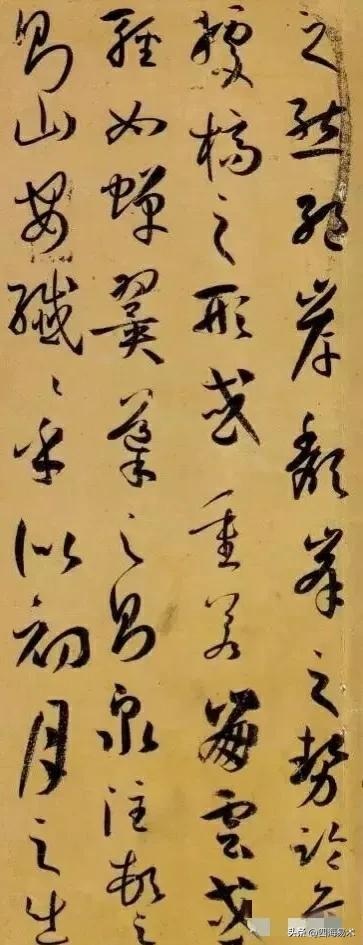 之態絕岸頹峯之勢臨危
據槁之形或重若崩雲或
輕如蟬翼導之則泉注頓之
則山安纖〻乎似初月之出
头条 @四海易术